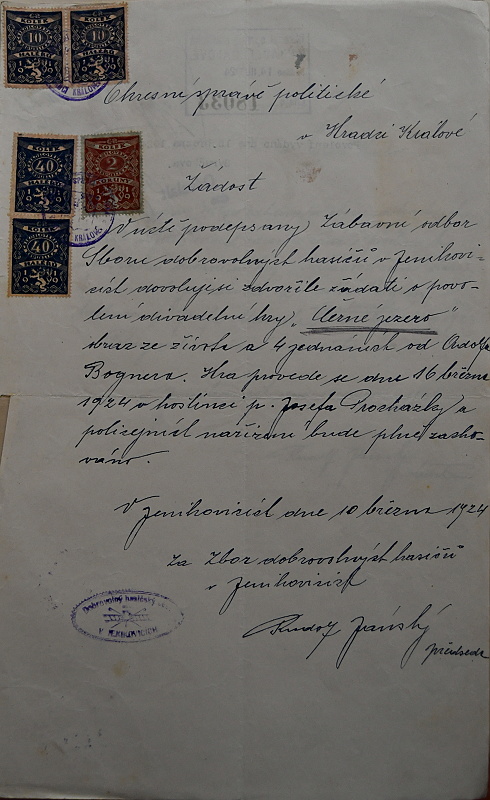 KOLEK
10
HALÉŘŮ
KOLEK
10
HALÉŘŮ
Okresní správě politické
v Hradci Králové
KOLEK
40
HALÉŘŮ
KOLEK
2
KORUNY
KOLEK
40
HALÉŘŮ
Žádost
V úctě podepsaný Zábavní odbor
Sboru dobrovolných hasičů v Jeníkovi-
cích dovoluje si zdvořile žádati o povo-
lení divadelní hry „Černé jezero“
obraz ze života a 4 jednáních od Rudolfa
Bognera. Hra provede se dne 16 března
1924 v hostinci p. Josefa Procházky a
policejních nařízení bude plně zacho-
váno.
V Jeníkovicích dne 10 března 1924
Za Zbor dobrovolných hasičů
v Jeníkovicích
Dobrovolný hasičský sbor
V JENÍKOVICÍCH
Rudolf Janský
předseda